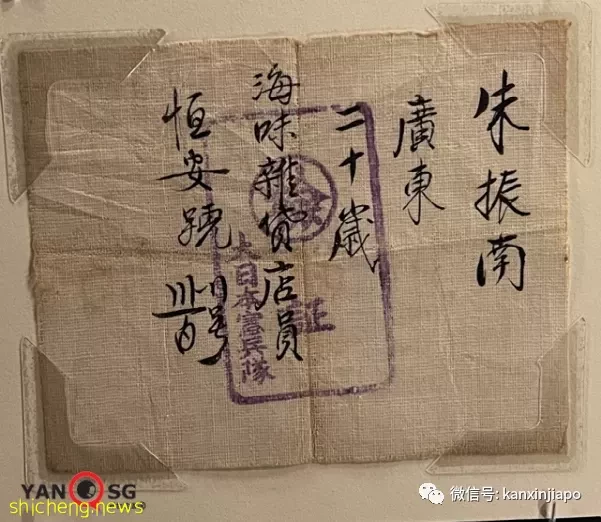 朱振南
廣東
二十歲
海味雜貨店員
恒安
号
証
大日本憲兵隊
YAN SG
shicheng.news
微信号: kanxinjiapo